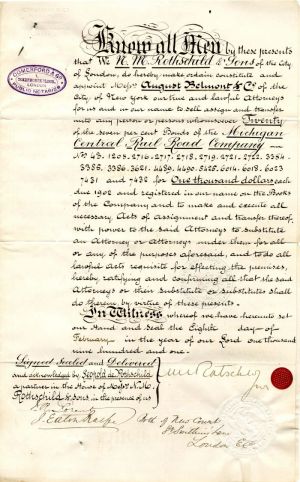 Know all Men by these presents
that We N. M. Rothschild & Sons of the City
of London, do hereby make ordain constitute and
appoint Messrs August Belmont & Co. of the
City of New York our true and lawful Attorneys
for us and in our name to sell assign and transfer
unto any person or persons whomsoever Twenty
of the seven per cent Bonds of the Michigan
Central Rail Road Company
No. 1205. 2716. 2717. 2718. 2719. 2721. 2722. 3354.
3355. 3386. 3621. 4489. 4490. 5425. 6014. 6018. 6023
7431 and 7432 for One thousand dollars each
due 1902 and registered in our name on the Books
of the Company and to make and execute all
necessary Acts of assignment and transfer thereof,
with power to the said Attorneys to substitute
an Attorney or Attorneys under them for all
or any of the purposes aforesaid, and to do all
lawful acts requisite for effecting the premises,
hereby ratifying and confirming all that the said
Attorneys or their Substitute or Substitutes shall
do therein by virtue of these presents.
In Witness whereof we have hereunto set
our Hand and Seal the Eighth day of
February in the year of Our Lord one thousand
nine hundred and one.
Signed Sealed and Delivered
and acknowledged by Leopold de Rothschild
a partner in the House of Messrs N. M.
Rothschild & Sons, in the presence of us
Both of New Court
St Swithins Lane
London E.C.
COMERFORD & CO
LONDON
PUBLIC NOTARIES